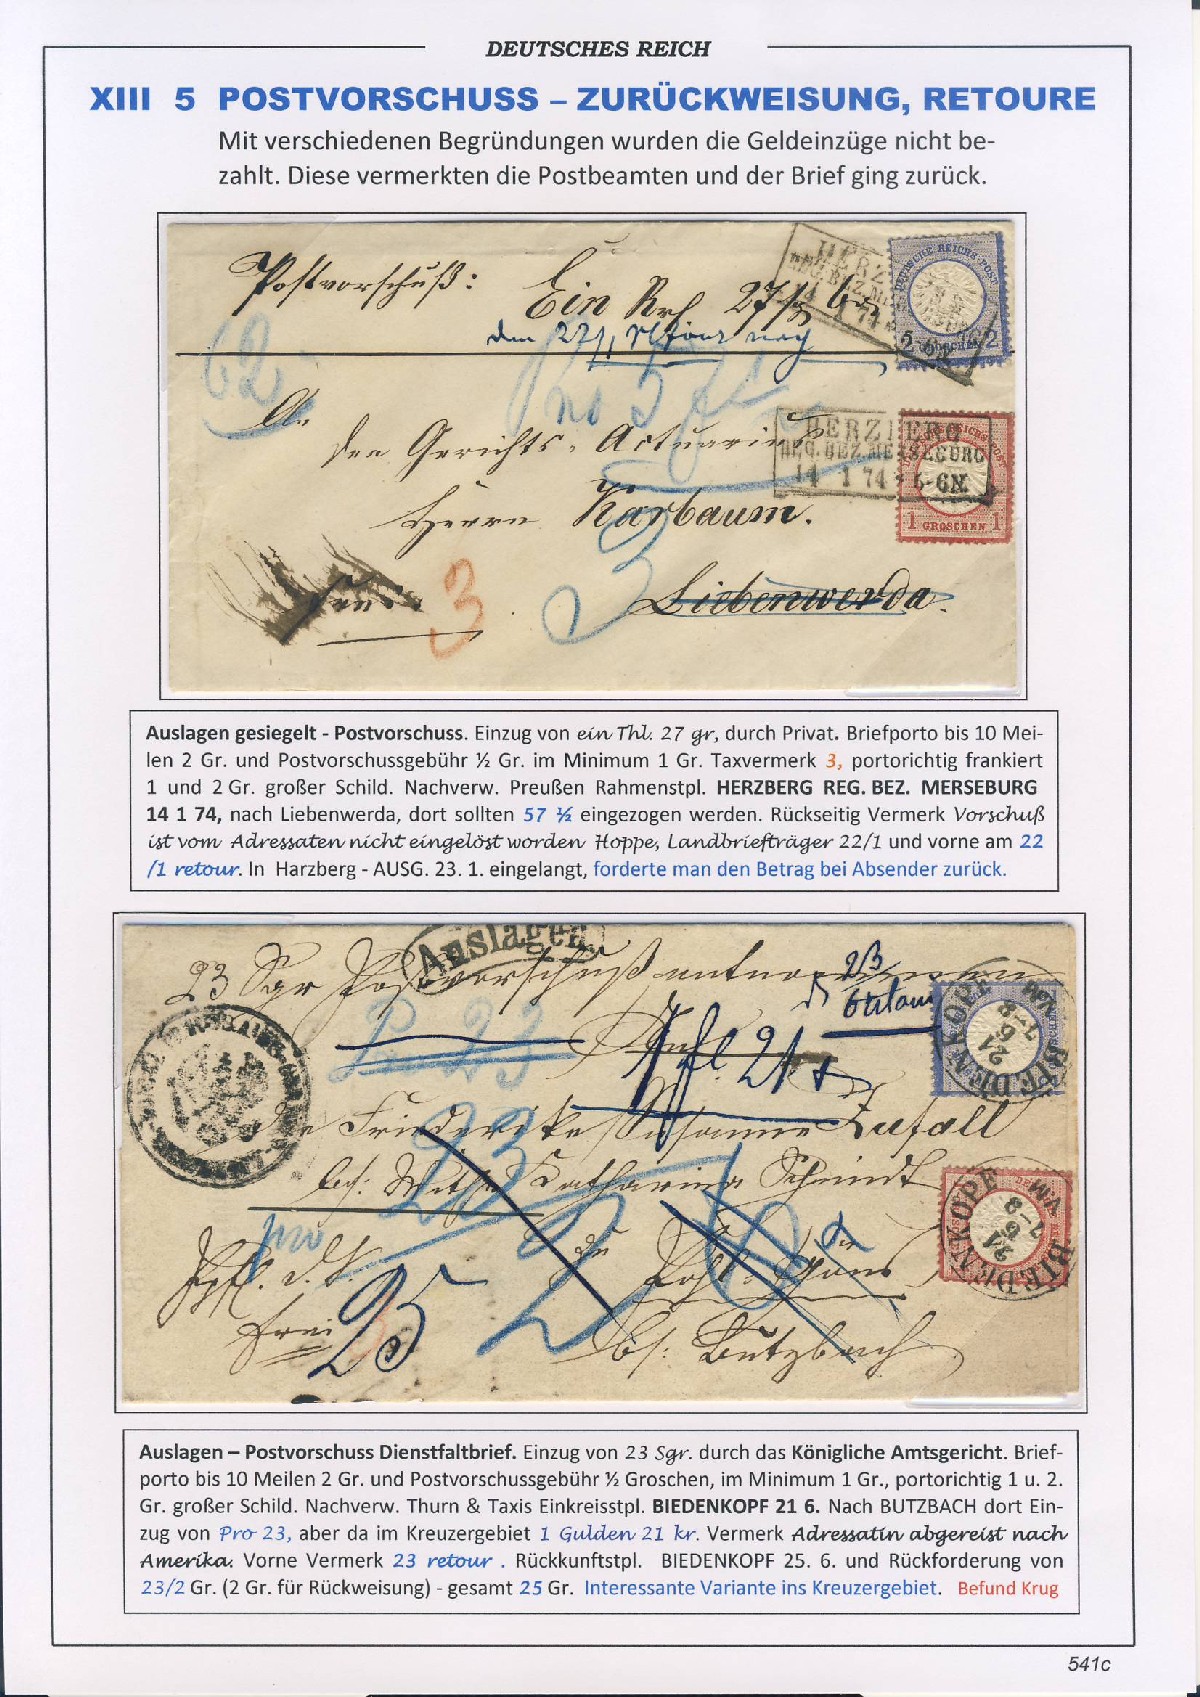 DEUTSCHES REICH
XIII 5 POSTVORSCHUSS – ZURÜCKWEISUNG, RETOURE
Mit verschiedenen Begründungen wurden die Geldeinzüge nicht be-
zahlt. Diese vermerkten die Postbeamten und der Brief ging zurück.
Postvorschuß: Ein
62
An
den Gerichts-Actuarius
Herrn Karbaum.
Liebenwerda.
3
3
HERZ
REG. BEZ. ME
14 1 74
2 GROSCHEN 2
HERZBERG
REG. BEZ. MERSEBURG
14 1 74 5-6N.
1 GROSCHEN 1
Auslagen gesiegelt - Postvorschuss. Einzug von ein Thl. 27 gr, durch Privat. Briefporto bis 10 Mei-
len 2 Gr. und Postvorschussgebühr ½ Gr. im Minimum 1 Gr. Taxvermerk 3, portorichtig frankiert
1 und 2 Gr. großer Schild. Nachverw. Preußen Rahmenstpl. HERZBERG REG. BEZ. MERSEBURG
14 1 74, nach Liebenwerda, dort sollten 57 ½ eingezogen werden. Rückseitig Vermerk Vorschuß
ist vom Adressaten nicht eingelöst worden Hoppe, Landbriefträger 22/1 und vorne am 22
/1 retour. In Harzberg - AUSG. 23. 1. eingelangt, forderte man den Betrag bei Absender zurück.
Auslagen
23 Sgr Postvorschuß entnommen
23
retour
P. 23
1 fl 21 x
die Friederike Susanne Zufall
bei Wittwe Catharina Schmidt
23
pro
zu
frei
25
bei Butzbach
BIEDENKOPF
21 6
7-8
VM
BIEDENKOPF
21 6
7-8
VM
Auslagen – Postvorschuss Dienstfaltbrief. Einzug von 23 Sgr. durch das Königliche Amtsgericht. Brief-
porto bis 10 Meilen 2 Gr. und Postvorschussgebühr ½ Groschen, im Minimum 1 Gr., portorichtig 1 u. 2.
Gr. großer Schild. Nachverw. Thurn & Taxis Einkreisstpl. BIEDENKOPF 21 6. Nach BUTZBACH dort Ein-
zug von Pro 23, aber da im Kreuzergebiet 1 Gulden 21 kr. Vermerk Adressatin abgereist nach
Amerika. Vorne Vermerk 23 retour . Rückkunftstpl. BIEDENKOPF 25. 6. und Rückforderung von
23/2 Gr. (2 Gr. für Rückweisung) - gesamt 25 Gr. Interessante Variante ins Kreuzergebiet. Befund Krug
541c